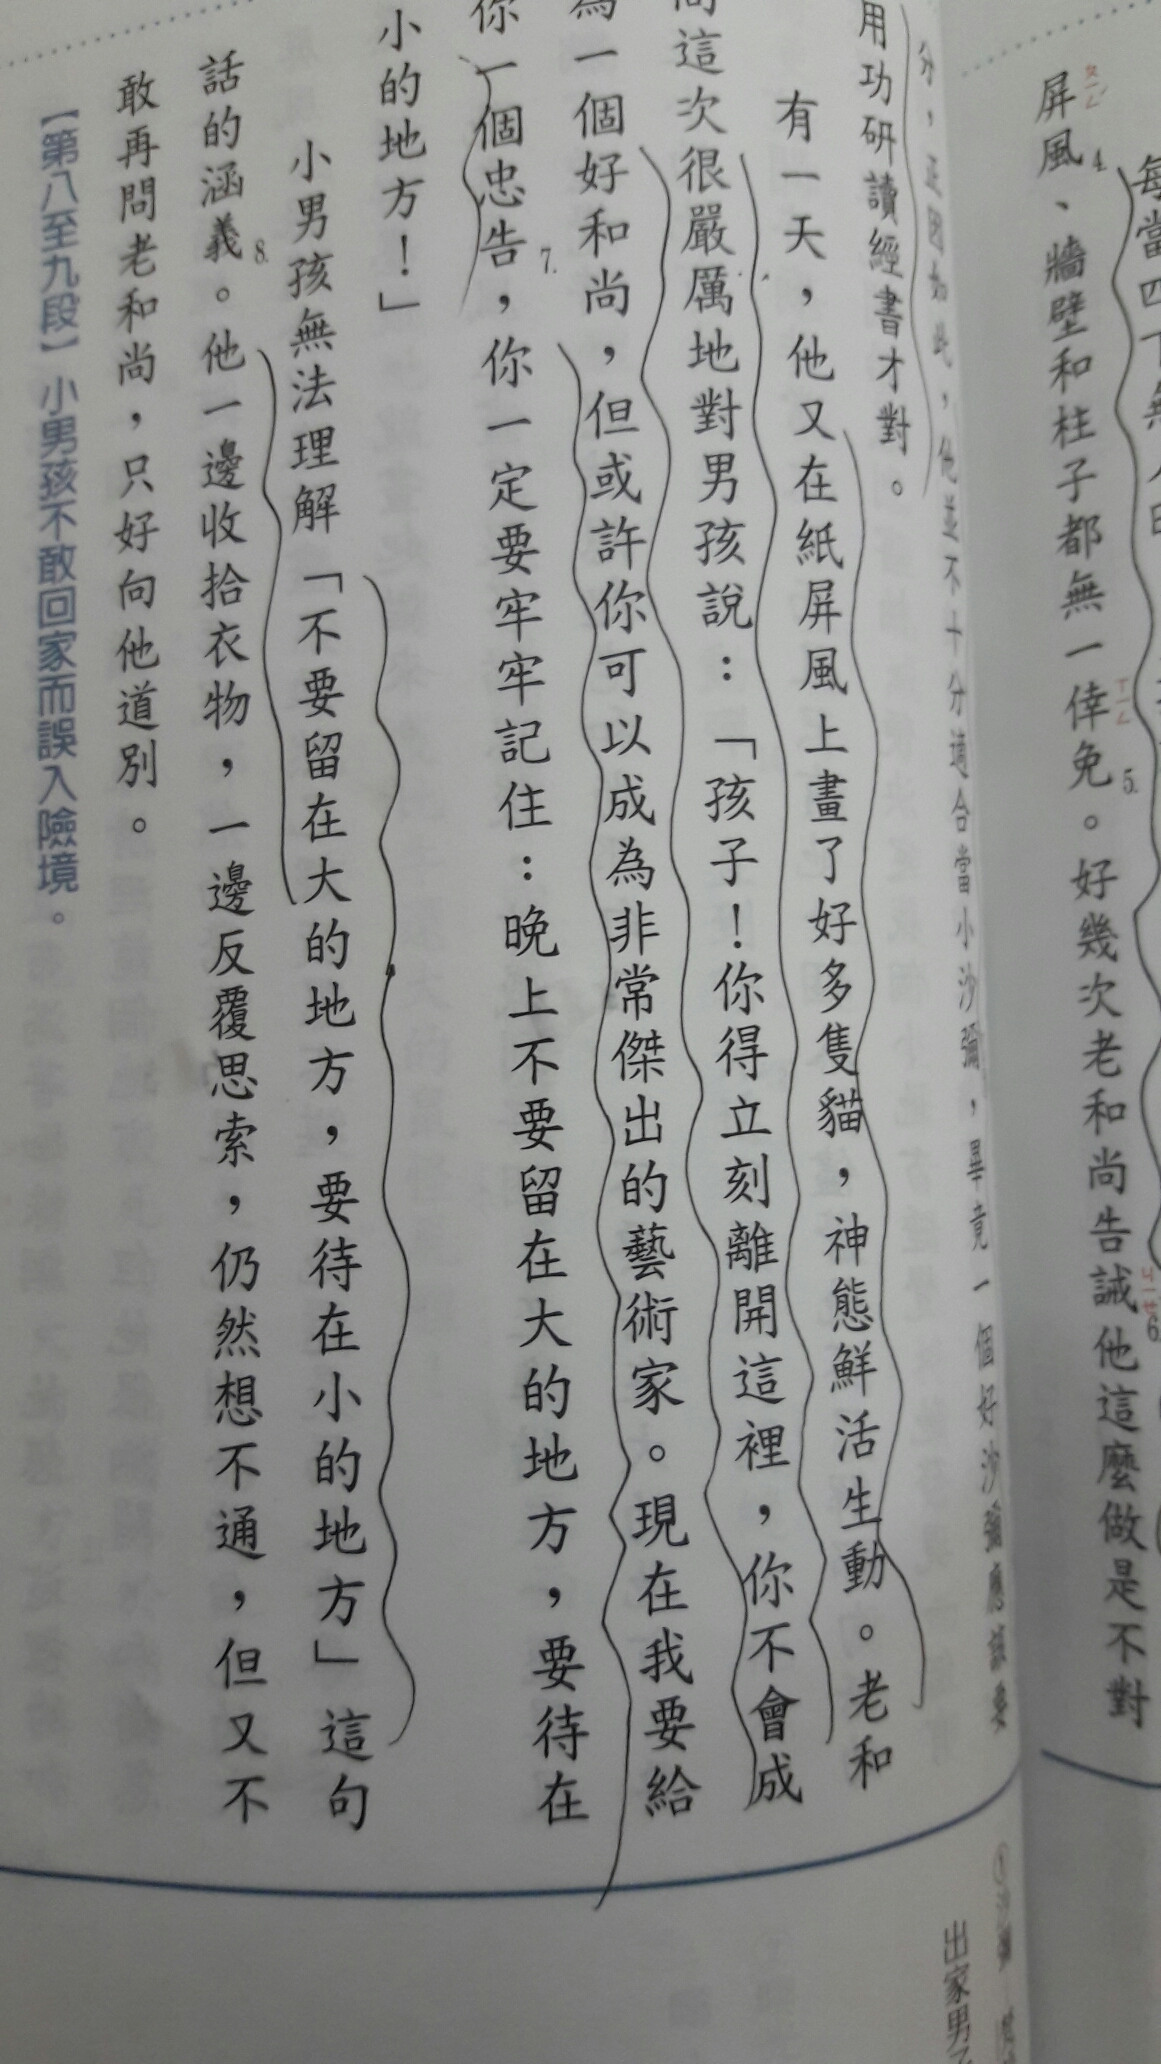 每當四下無人
屏風、牆壁和柱子都無一倖免。好幾次老和尚告誡他這麼做是不對
ㄆㄧㄥˊ
4.
ㄒㄧㄥˋ
5.
ㄐㄧㄝˋ
6.
分,正因如此,他並不十分適合當小沙彌,畢竟一個好沙彌應該要
用功研讀經書才對。
有一天,他又在紙屏風上畫了好多隻貓,神態鮮活生動。老和
尚這次很嚴厲地對男孩說:「孩子!你得立刻離開這裡,你不會成
為一個好和尚,但或許你可以成為非常傑出的藝術家。現在我要給
你一個忠告,你一定要牢牢記住:晚上不要留在大的地方,要待在
7.
小的地方!」
小男孩無法理解「不要留在大的地方,要待在小的地方」這句
話的涵義。他一邊收拾衣物,一邊反覆思索,仍然想不通,但又不
8.
敢再問老和尚,只好向他道別。
【第八至九段】小男孩不敢回家而誤入險境。
①沙彌
出家男子